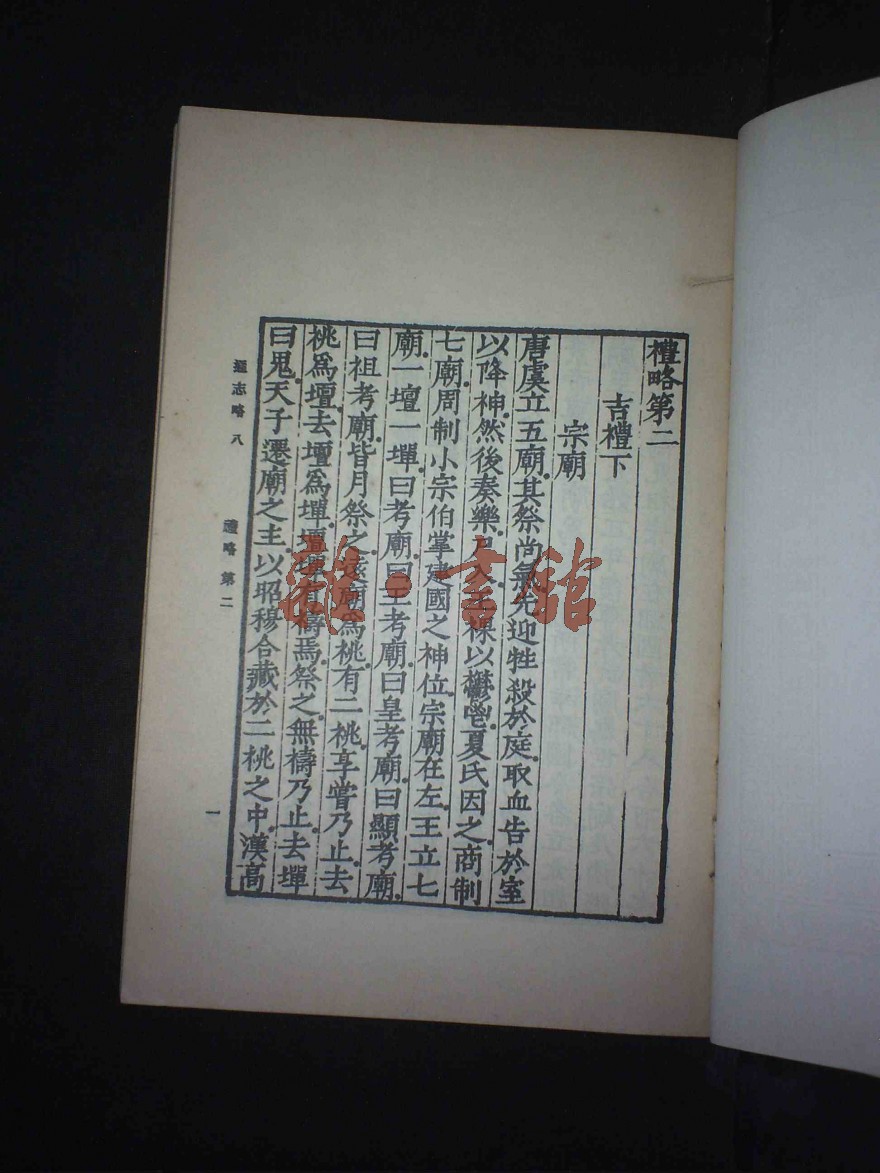 禮略第二
吉禮下
宗廟
唐虞立五廟其祭尚氣先迎牲殺於庭取血告於室
以降神然後奏樂尸入王祼以鬱鬯夏氏因之商制
七廟周制小宗伯掌建國之神位宗廟在左王立七
廟一壇一墠曰考廟曰王考廟曰皇考廟曰顯考廟
曰祖考廟皆月祭之遠廟爲祧有二祧享嘗乃止去
祧爲壇去壇爲墠壇墠有禱焉祭之無禱乃止去墠
曰鬼天子遷廟之主以昭穆合藏於二祧之中漢高
通志略 八 禮略 第二
一
雜·書館